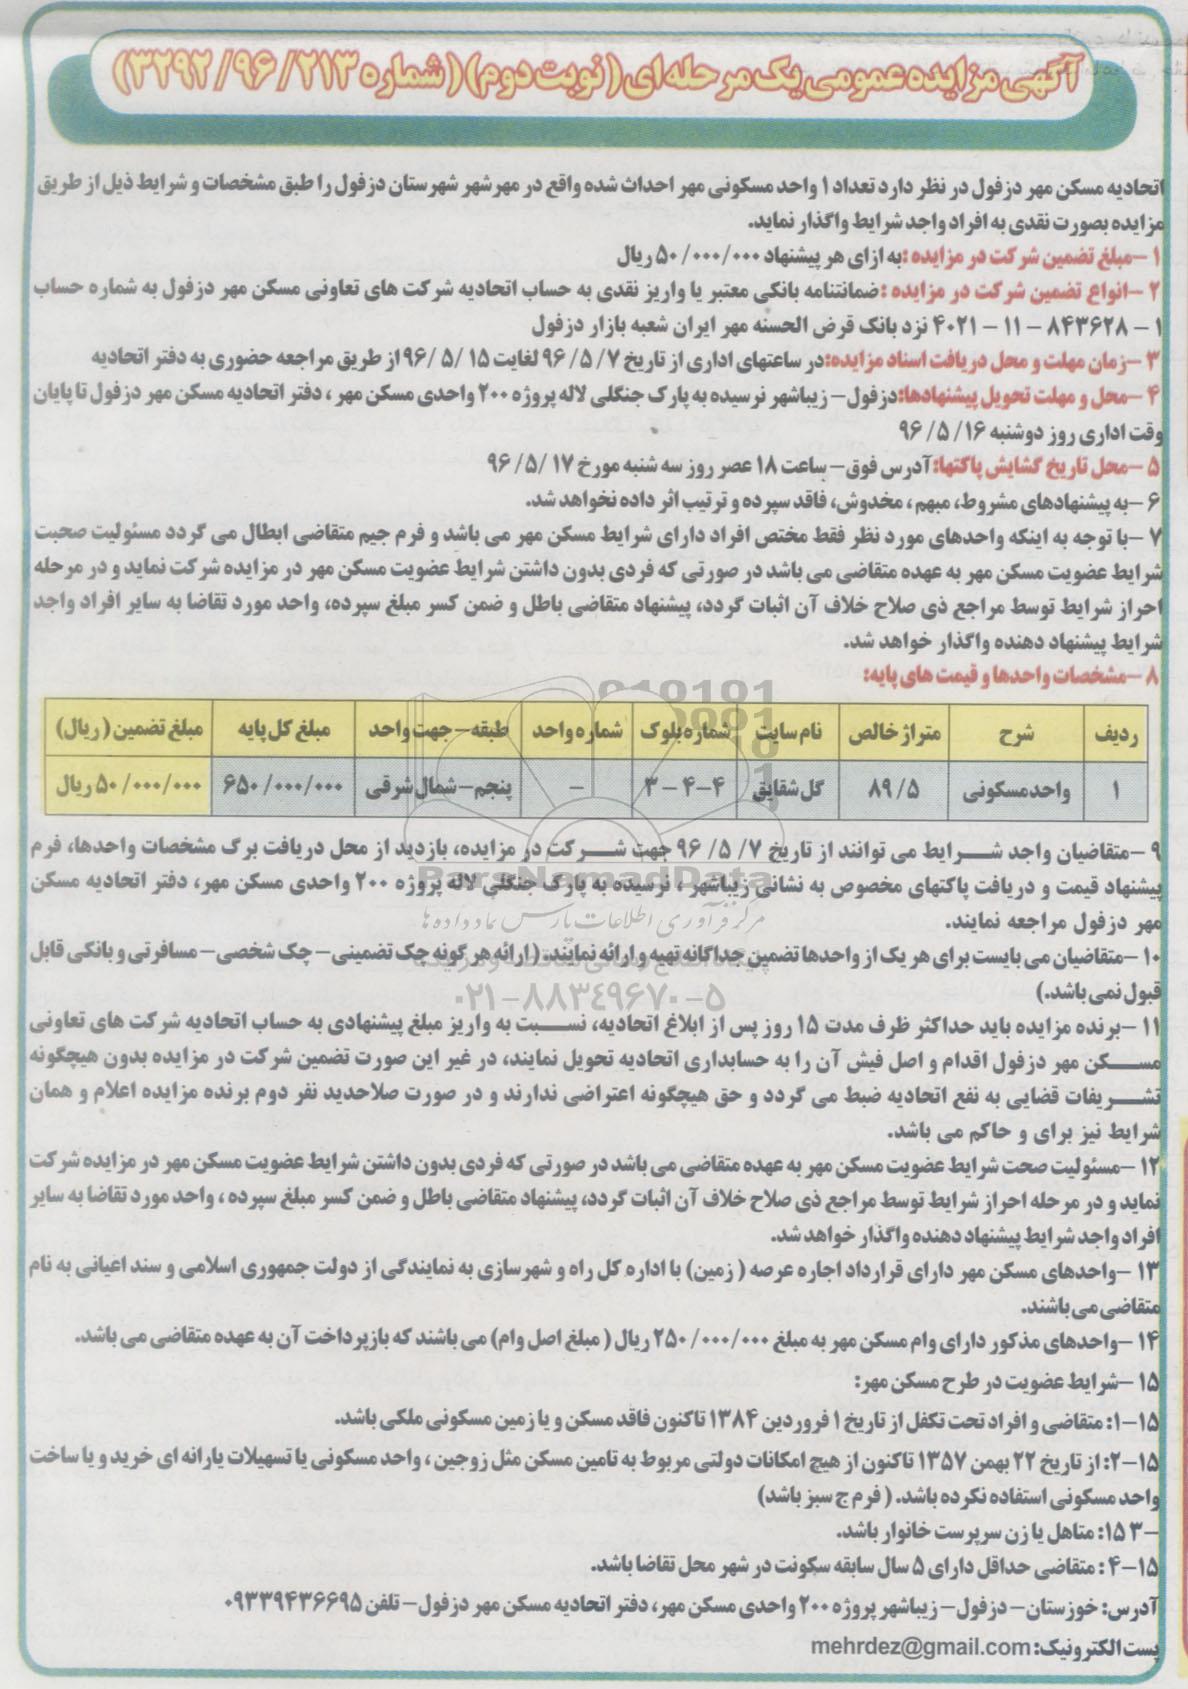 آگهی مزایده عمومی یک مرحله ای ( نوبت دوم) ( شماره ۲۱۳/ ۹۶/ ۳۲۹۲)
اتحادیه مسکن مهر دزفول در نظر دارد تعداد ۱ واحد مسکونی مهر احداث شده واقع در مهرشهر شهرستان دزفول را طبق مشخصات و شرایط ذیل از طریق
مزایده بصورت نقدی به افراد واجد شرایط واگذار نماید.
۱ –مبلغ تضمین شرکت در مزایده :به ازای هر پیشنهاد ۵۰/۰۰۰/۰۰۰ ریال
۲ –انواع تضمین شرکت در مزایده :ضمانتنامه بانکی معتبر یا واریز نقدی به حساب اتحادیه شرکت های تعاونی مسکن مهر دزفول به شماره حساب
۱ – ۸۴۳۶۲۸ – ۱۱ – ۴۰۲۱ نزد بانک قرض الحسنه مهر ایران شعبه بازار دزفول
۳ –زمان مهلت و محل دریافت اسناد مزایده:در ساعتهای اداری از تاریخ ۷/ ۵/ ۹۶ لغایت ۱۵ /۵/ ۹۶ از طریق مراجعه حضوری به دفتر اتحادیه
۴ –محل و مهلت تحویل پیشنهادها:دزفول– زیباشهر نرسیده به پارک جنگلی لاله پروژه ۲۰۰ واحدی مسکن مهر ، دفتر اتحادیه مسکن مهر دزفول تا پایان
وقت اداری روز دوشنبه ۱۶/ ۵/ ۹۶
۵ –محل تاریخ گشایش پاکتها:آدرس فوق– ساعت ۱۸ عصر روز سه شنبه مورخ ۱۷ /۵/ ۹۶
۶ –به پیشنهادهای مشروط، مبهم ، مخدوش، فاقد سپرده و ترتیب اثر داده نخواهد شد.
۷ –با توجه به اینکه واحدهای مورد نظر فقط مختص افراد دارای شرایط مسکن مهر می باشد و فرم جیم متقاضی ابطال می گردد مسئولیت صحبت
شرایط عضویت مسکن مهر به عهده متقاضی می باشد در صورتی که فردی بدون داشتن شرایط عضویت مسکن مهر در مزایده شرکت نماید و در مرحله
احراز شرایط توسط مراجع ذی صلاح خلاف آن اثبات گردد، پیشنهاد متقاضی باطل و ضمن کسر مبلغ سپرده، واحد مورد تقاضا به سایر افراد واجد
شرایط پیشنهاد دهنده واگذار خواهد شد.
۸ –مشخصات واحدها و قیمت های پایه:
ردیف شرح متراژ خالص نام سایت شماره بلوک شماره واحد طبقه– جهت واحد مبلغ کل پایه مبلغ تضمین ( ریال)
۱ واحد مسکونی ۸۹/۵ گل شقایق ۴–۴ – ۳ – پنجم– شمال شرقی ۶۵۰/۰۰۰/۰۰۰ ۵۰/۰۰۰/۰۰۰ ریال
۹ –متقاضیان واجد شرایط می توانند از تاریخ ۷/ ۵/ ۹۶ جهت شرکت در مزایده، بازدید از محل دریافت برگ مشخصات واحدها، فرم
پیشنهاد قیمت و دریافت پاکتهای مخصوص به نشانی زیباشهر ، نرسیده به پارک جنگلی لاله پروژه ۲۰۰ واحدی مسکن مهر، دفتر اتحادیه مسکن
ParsNamadData
مهر دزفول مراجعه نمایند.
مرکز فرآوری اطلاعات پارس نماد داده ها
۱۰ –متقاضیان می بایست برای هر یک از واحدها تضمین جداگانه تهیه و ارائه نمایند. ( ارائه هر گونه چک تضمینی– چک شخصی– مسافرتی و بانکی قابل
قبول نمی باشد.)
۰۲۱–۸۸۳۴۹۶۷۰–۵
۱۱ –برنده مزایده باید حداکثر ظرف مدت ۱۵ روز پس از ابلاغ اتحادیه، نسبت به واریز مبلغ پیشنهادی به حساب اتحادیه شرکت های تعاونی
مسکن مهر دزفول اقدام و اصل فیش آن را به حسابداری اتحادیه تحویل نمایند، در غیر این صورت تضمین شرکت در مزایده بدون هیچگونه
تشریفات قضایی به نفع اتحادیه ضبط می گردد و حق هیچگونه اعتراضی ندارند و در صورت صلاحدید نفر دوم برنده مزایده اعلام و همان
شرایط نیز برای و حاکم می باشد.
۱۲ –مسئولیت صحت شرایط عضویت مسکن مهر به عهده متقاضی می باشد در صورتی که فردی بدون داشتن شرایط عضویت مسکن مهر در مزایده شرکت
نماید و در مرحله احراز شرایط توسط مراجع ذی صلاح خلاف آن اثبات گردد، پیشنهاد متقاضی باطل و ضمن کسر مبلغ سپرده ، واحد مورد تقاضا به سایر
افراد واجد شرایط پیشنهاد دهنده واگذار خواهد شد.
۱۳ –واحدهای مسکن مهر دارای قرارداد اجاره عرصه ( زمین) با اداره کل راه و شهرسازی به نمایندگی از دولت جمهوری اسلامی و سند اعیانی به نام
متقاضی می باشند.
۱۴ –واحدهای مذکور دارای وام مسکن مهر به مبلغ ۲۵۰/۰۰۰/۰۰۰ ریال ( مبلغ اصل وام) می باشند که بازپرداخت آن به عهده متقاضی می باشد.
۱۵ –شرایط عضویت در طرح مسکن مهر:
۱۵–۱: متقاضی و افراد تحت تکفل از تاریخ ۱ فروردین ۱۳۸۴ تاکنون فاقد مسکن و یا زمین مسکونی ملکی باشد.
۱۵–۲: از تاریخ ۲۲ بهمن ۱۳۵۷ تاکنون از هیچ امکانات دولتی مربوط به تامین مسکن مثل زوجین ، واحد مسکونی یا تسهیلات یارانه ای خرید و یا ساخت
واحد مسکونی استفاده نکرده باشد. ( فرم ج سبز باشد)
–۱۵ ۳: متاهل یا زن سرپرست خانوار باشد.
۱۵–۴ : متقاضی حداقل دارای ۵ سال سابقه سکونت در شهر محل تقاضا باشد.
آدرس: خوزستان– دزفول– زیباشهر پروژه ۲۰۰ واحدی مسکن مهر، دفتر اتحادیه مسکن مهر دزفول– تلفن ۰۹۳۳۹۴۳۶۶۹۵
پست الکترونیک: mehrdez@gmail.com